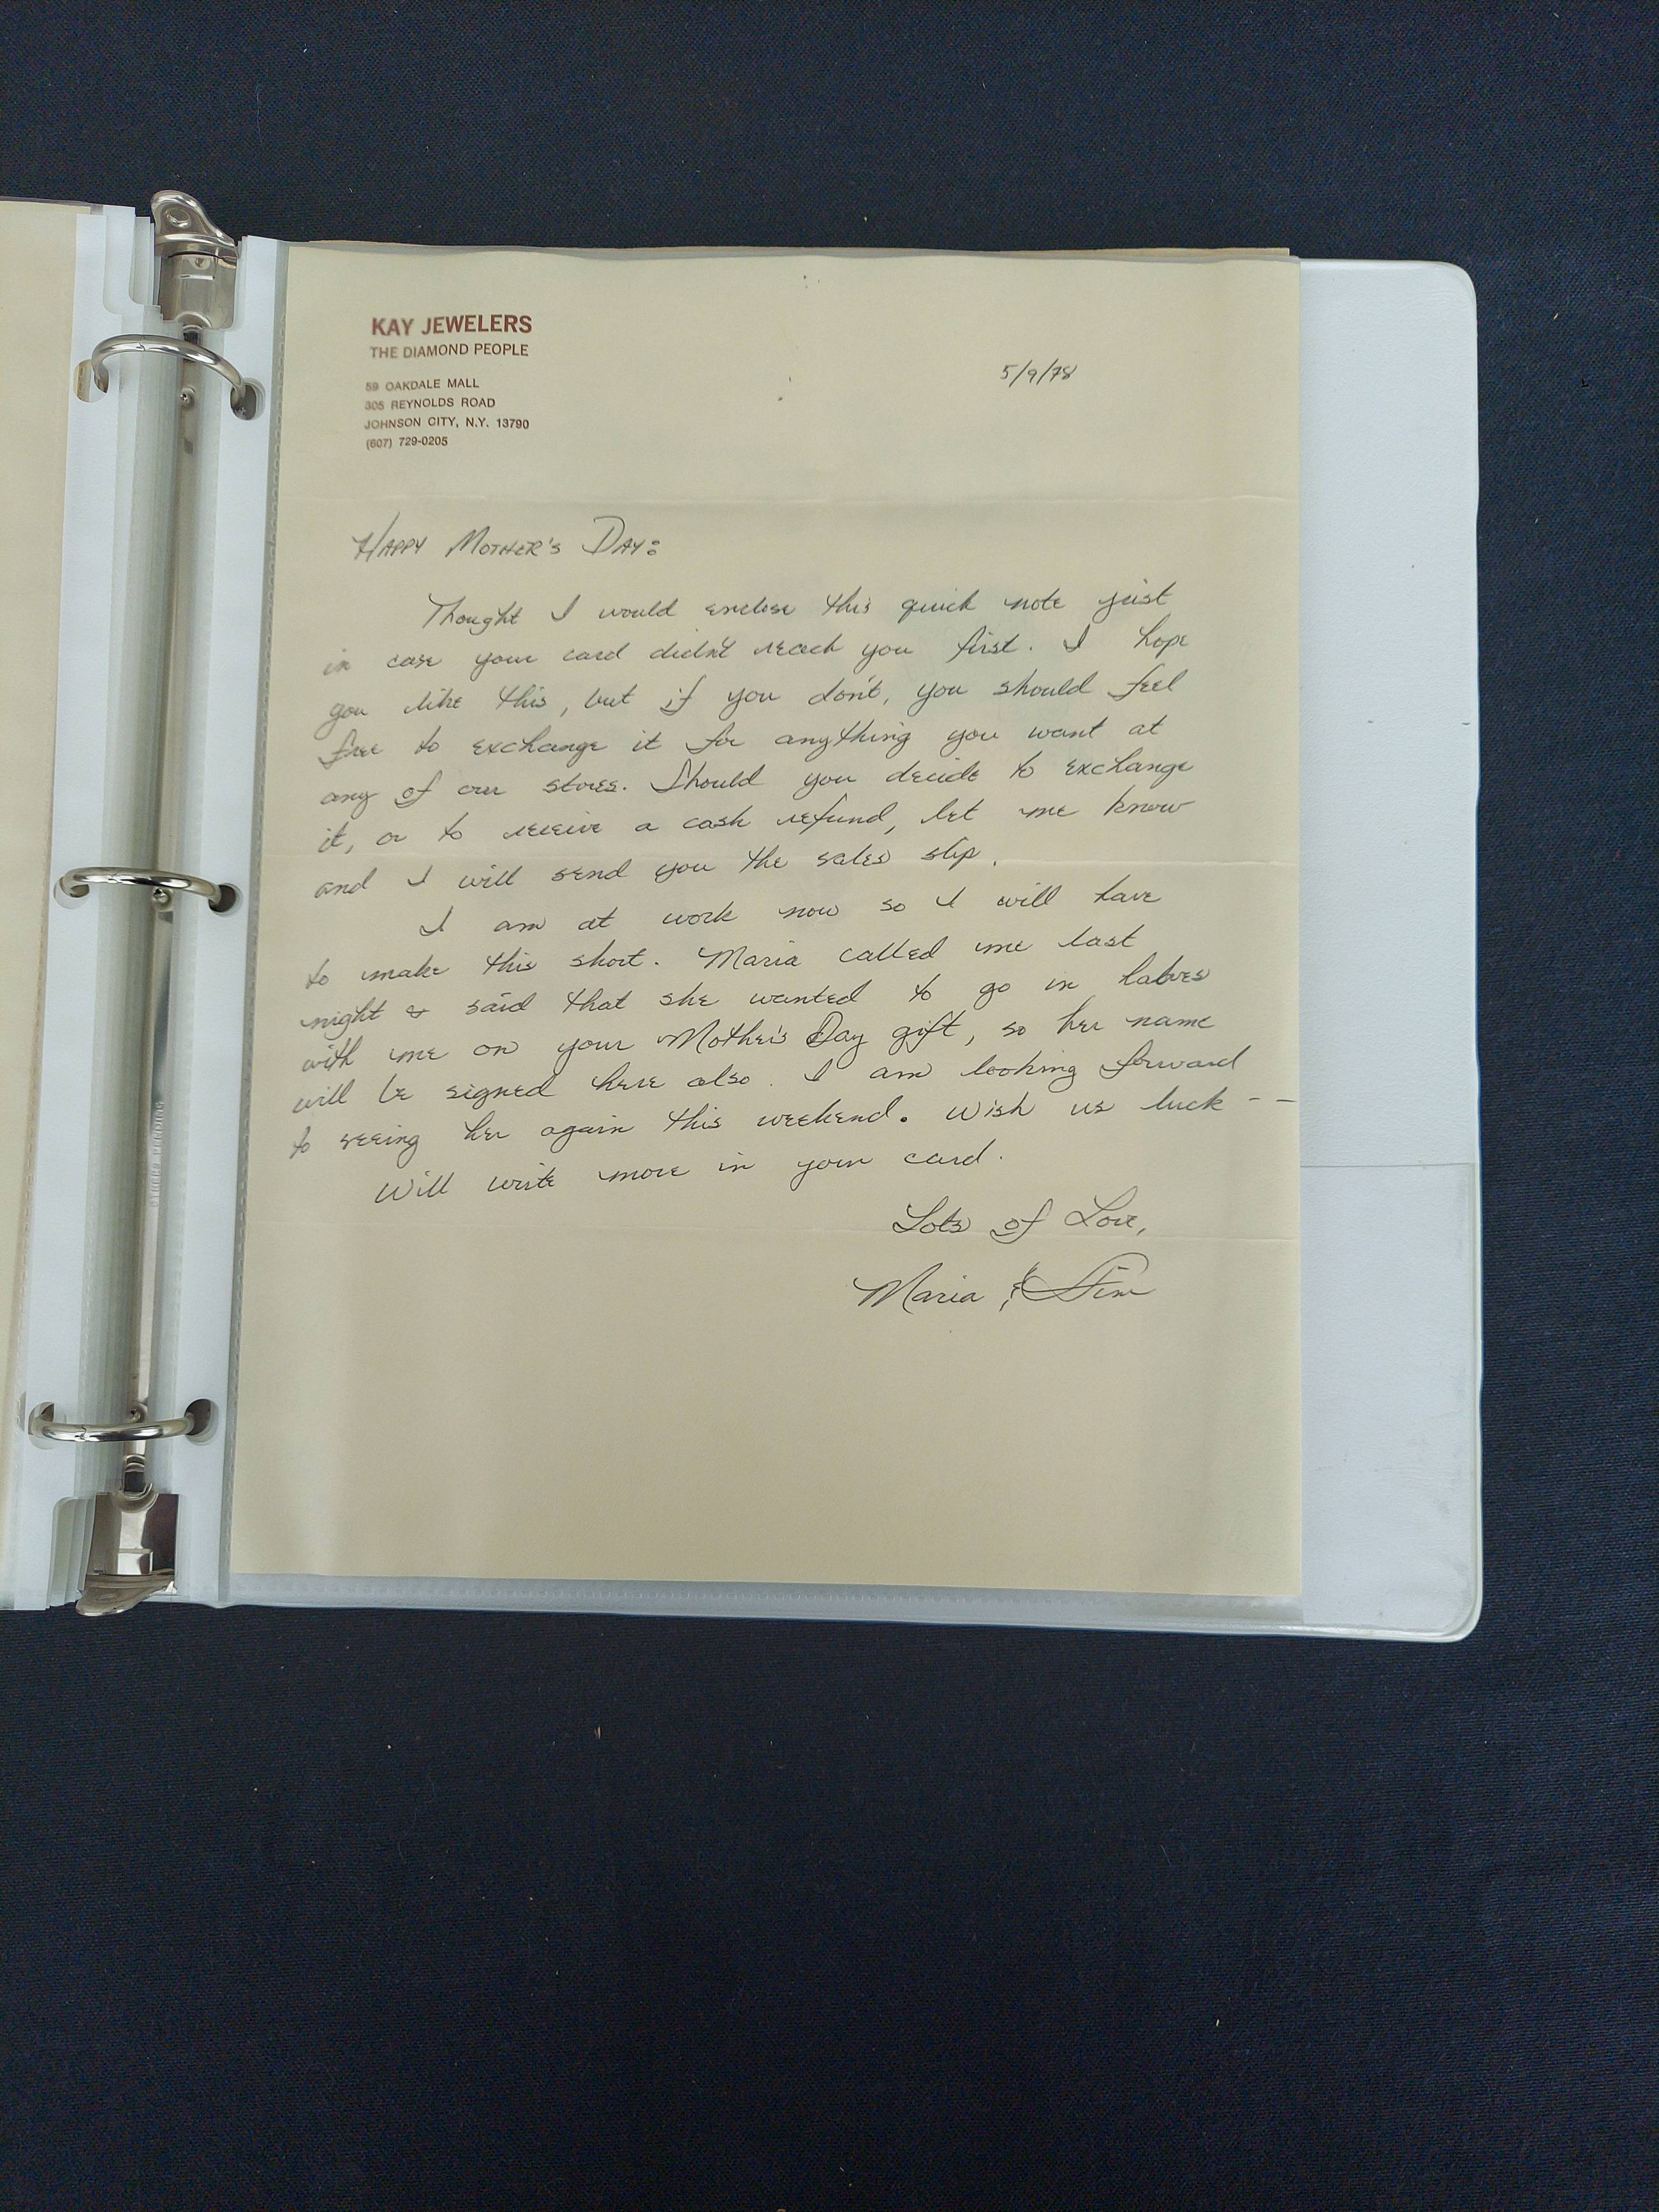 KAY JEWELERS
THE DIAMOND PEOPLE
59 OAKDALE MALL
305 REYNOLDS ROAD
JOHNSON CITY, N.Y. 13790
(607) 729-0205
5/9/78
HAPPY MOTHER'S DAY:
Thought I would enclose this quick note just
in case your card didn't reach you first. I hope
you like this, but if you don't, you should feel
free to exchange it for anything you want at
any of our stores. Should you decide to exchange
it, or to receive a cash refund, let me know
and I will send you the sales slip.
I am at work now so I will have
to make this short. Maria called me last
night & said that she wanted to go in halves
with me on your Mother's Day gift, so her name
will be signed here also. I am looking forward
to seeing her again this weekend. Wish us luck --
Will write more in your card.
Lots of Love,
Maria & Jim